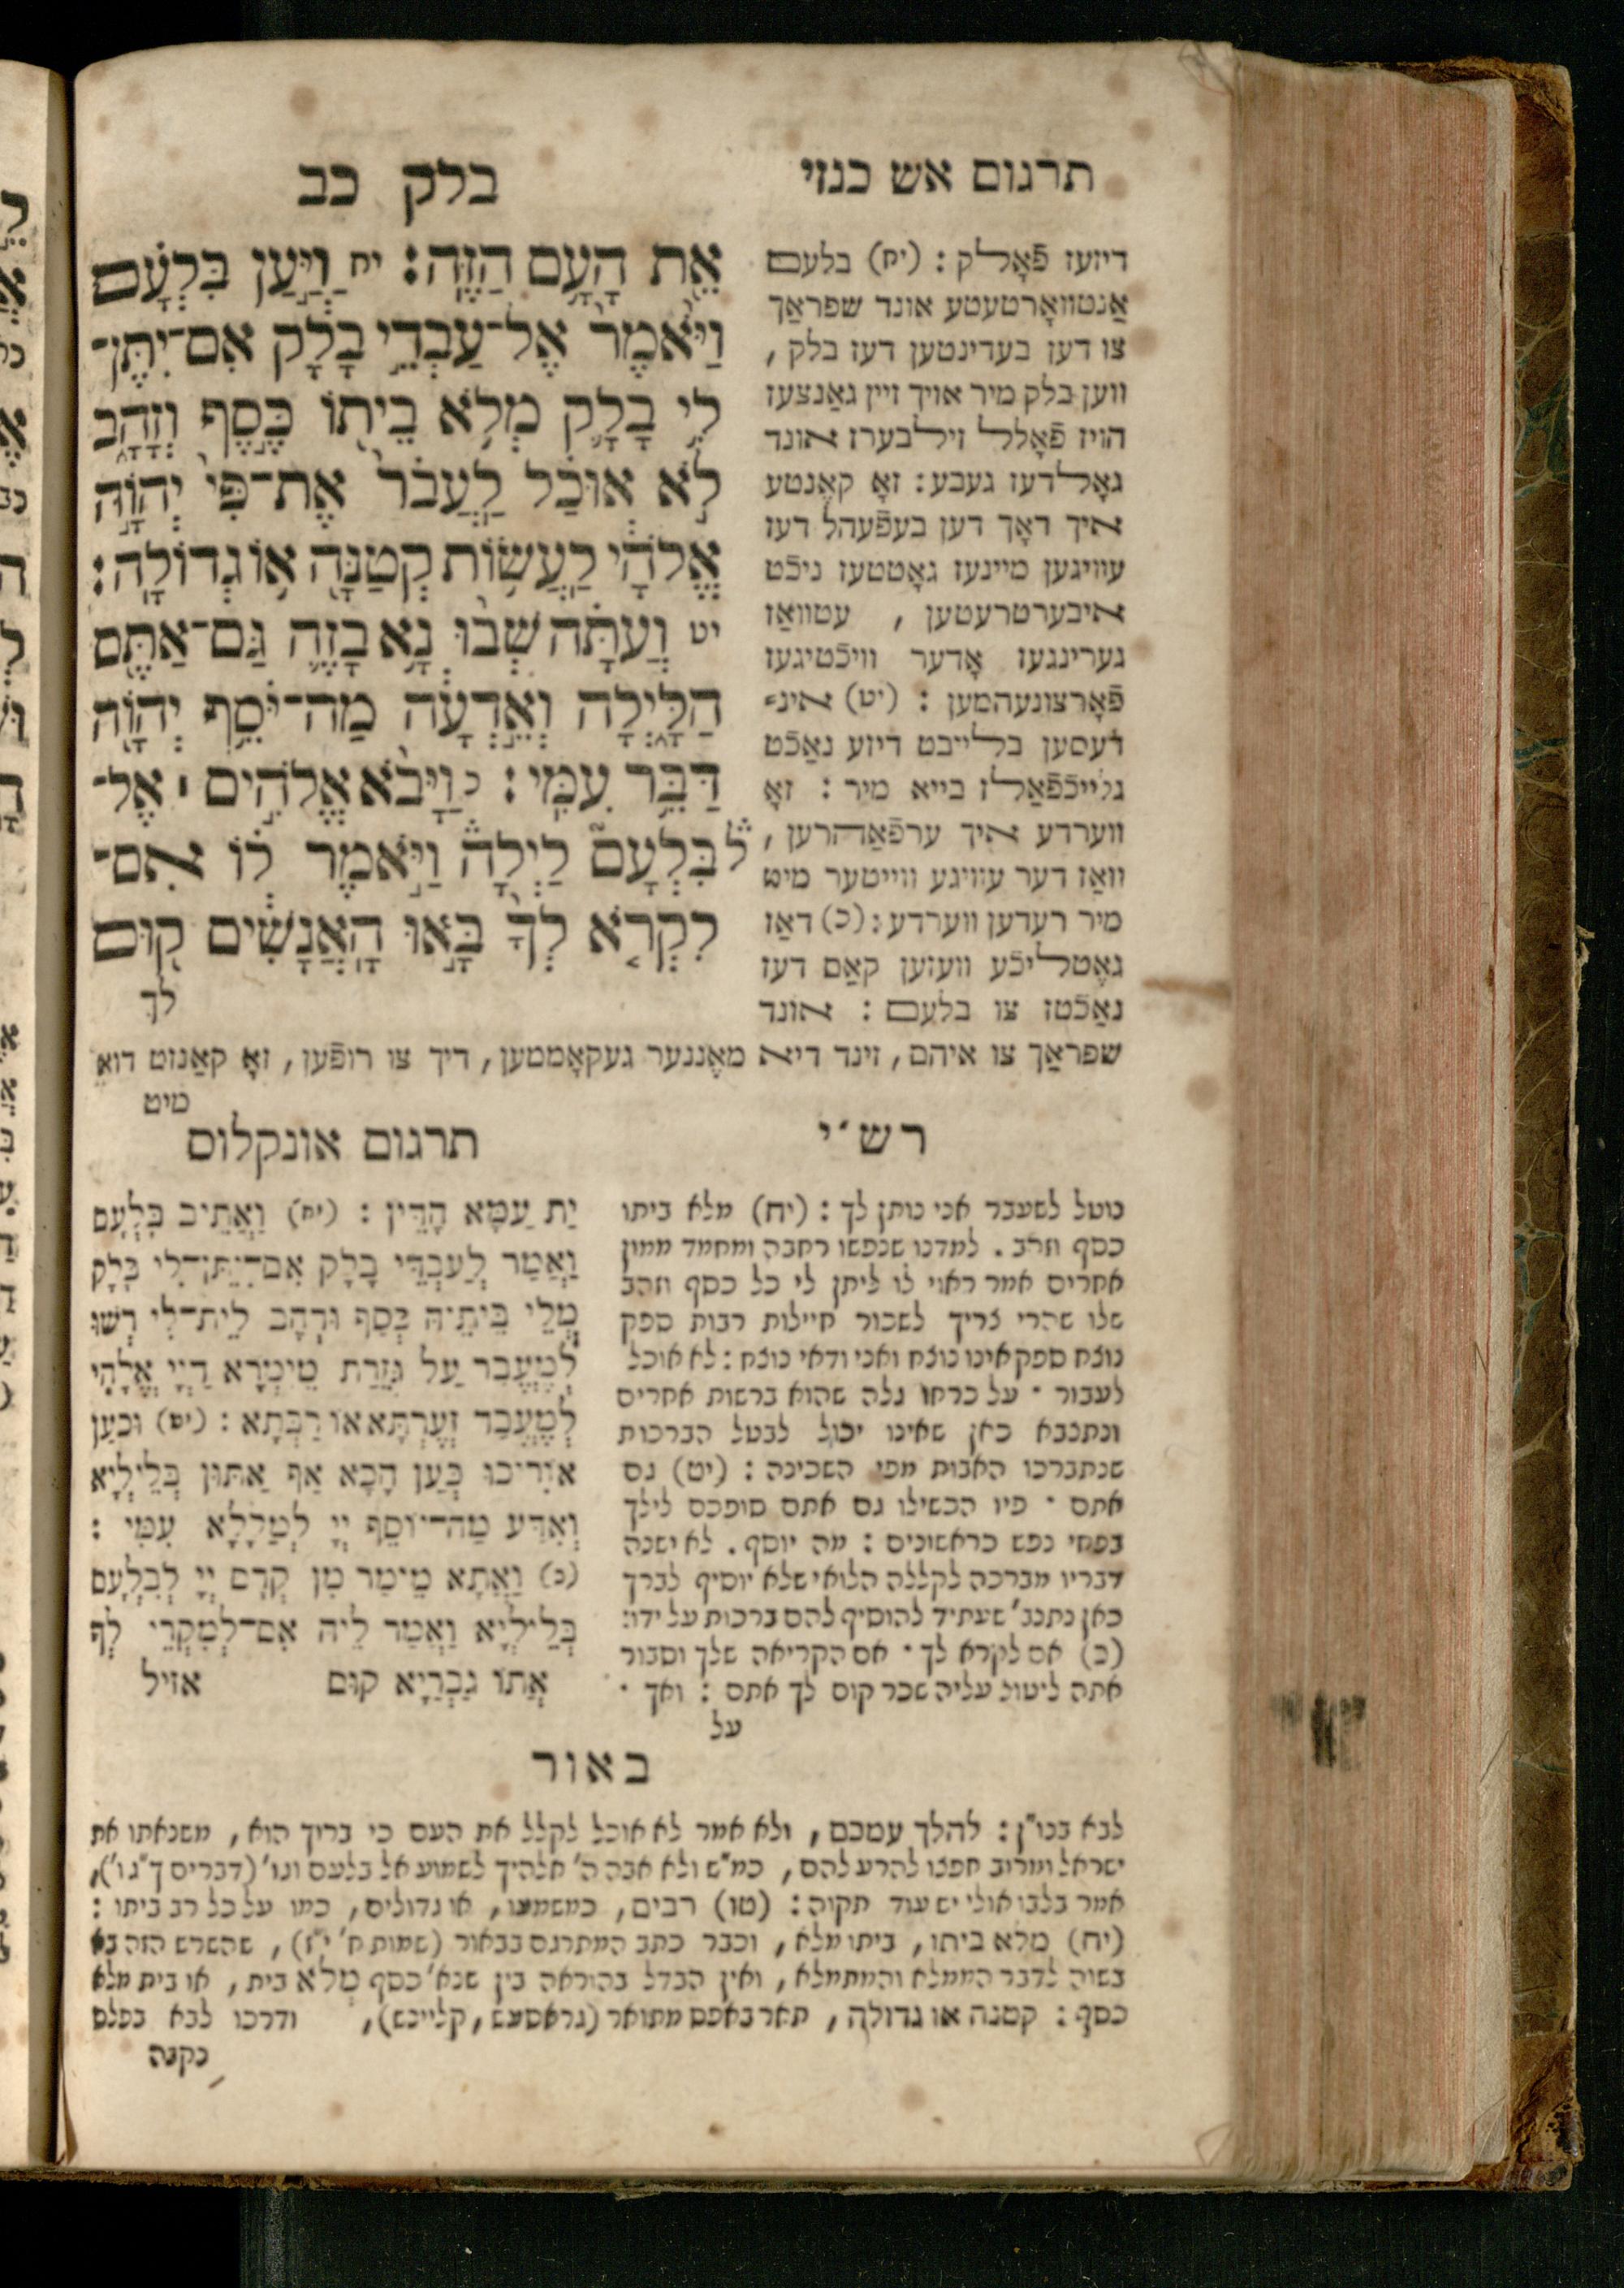 תרגום אשכנזי
בלק כב
אֶת הָעָם הַזֶּה: יח וַיַּעַן בִּלְעָם
וַיֹּאמֶר אֶל־עַבְדֵי בָלָק אִם־יִתֶּן־
לִי בָלָק מְלֹא בֵיתוֹ כֶּסֶף וְזָהָב
לֹא אוּכַל לַעֲבֹר אֶת־פִּי יְהוָֹה
אֱלֹהָי לַעֲשׂוֹת קְטַנָּה אוֹ גְדוֹלָה:
יט וְעַתָּה שְׁבוּ נָא בָזֶה גַּם־אַתֶּם
הַלָּיְלָה וְאֵדְעָה מַה־יֹּסֵף יְהוָֹה
דַּבֵּר עִמִּי: כ וַיָּבֹא אֱלֹהִים ׀ אֶל־
בִּלְעָם לַיְלָה וַיֹּאמֶר לוֹ אִם־
לִקְרֹא לְךָ בָּאוּ הָאֲנָשִׁים קוּם
לך
דיזעז פֿאָלק: (יח) בלעם
אַנטוואָרטעטע אונד שפראַך
צו דען בעדינטען דעז בלק,
ווען בלק מיר אויך זיין גאַנצעז
הויז פֿאָלל זילבערז אונד
גאָלדעז געבע: זאָ קאֶנטע
איך דאָך דען בעפֿעהל דעז
עוויגען מיינעז גאָטטעז ניכֿט
איבערטרעטען, עטוואַז
גערינגעז אָדער וויכֿטיגעז
פֿאָרצונעהמען: (יט) אינ⸗
דעסען בלייבט דיזע נאַכֿט
גלייכֿפֿאַלז בייא מיר: זאָ
ווערדע איך ערפֿאַהרען,
וואַז דער עוויגע ווייטער מיט
מיר רעדען ווערדע: (כ) דאַז
גאֶטליכֿע וועזען קאַם דעז
נאַכֿטז צו בלעם: אונד
שפראַך צו איהם, זינד דיא מאֶננער געקאָממען, דיך צו רופֿען, זאָ קאַנזט דוא
מיט
רש"י
נוטל לשעבר אני נותן לך: (יח) מלא ביתו
כסף וזהב. למדנו שנפשו רחבה ומחמד ממון
אחרים אמר ראוי לו ליתן לי כל כסף וזהב
שלו שהרי צריך לשכור חיילות רבות ספק
נוצח ספק אינו נוצח ואני ודאי נוצח: לא אוכל
לעבור · על כרחו גלה שהוא ברשות אחרים
ונתנבא כאן שאינו יכול לבטל הברכות
שנתברכו האבות מפי השכינה: (יט) גם
אתם · פיו הכשילו גם אתם סופכם לילך
בפחי נפש כראשונים: מה יוסף. לא ישנה
דבריו מברכה לקללה הלואי שלא יוסיף לברך
כאן נתנב' שעתיד להוסיף להם ברכות על ידו:
(כ) אם לקרא לך · אם הקריאה שלך וסבור
אתה ליטול עליה שכר קום לך אתם: ואך ·
על
תרגום אונקלוס
יַת עַמָּא הָדֵין: (יח) וַאֲתֵיב בִּלְעָם
וַאֲמַר לְעַבְדֵי בָלָק אִם־יִתֶּן־לִי בָלָק
מְלֵי בֵיתֵיהּ כְּסַף וּדְהָב לֵית־לִי רְשׁוּ
לְמֶעֱבַר עַל גְּזֵרַת מֵימְרָא דַיְיָ אֱלָהָי
לְמֶעֱבַד זְעֶרְתָּא אוֹ רַבְּתָא: (יט) וּכְעַן
אוֹרִיכוּ כְּעַן הָכָא אַף אַתּוּן בְּלֵילְיָא
וְאִדַּע מַה־יוֹסֵף יְיָ לְמַלָּלָא עִמִּי:
(כ) וַאֲתָא מֵימַר מִן קֳדָם יְיָ לְבִלְעָם
בְּלֵילְיָא וַאֲמַר לֵיהּ אִם־לְמִקְרֵי לָךְ
אֲתוֹ גַבְרַיָּא קוּם אזיל
באור
לבא בנו"ן: להלך עמכם, ולא אמר לא אוכל לקלל את העם כי בריך הוא, משנאתו את
ישראל ומרוב חפצו להרע להם, כמ"ש ולא אבה ה' אלהיך לשמוע אל בלעם וגו' (דברים ך"ג ו'),
אמר בלבו אולי יש עוד תקוה: (טו) רבים, כמשמעו, או גדולים, כמו על כל רב ביתו:
(יח) מלא ביתו, ביתו מלא, וכבר כתב המתרגם בבאור (שמות ח' י"ז), שהשרש הזה בא
בשוה לדבר הממלא והמתמלא, ואין הבדל בהוראה בין שנא' כסף מְלֹא בית, או בית מלא
כסף: קטנה או גדולה, תאר באפס מתואר (גראסעש, קליינש), ודרכו לבא בפלס
נקבה